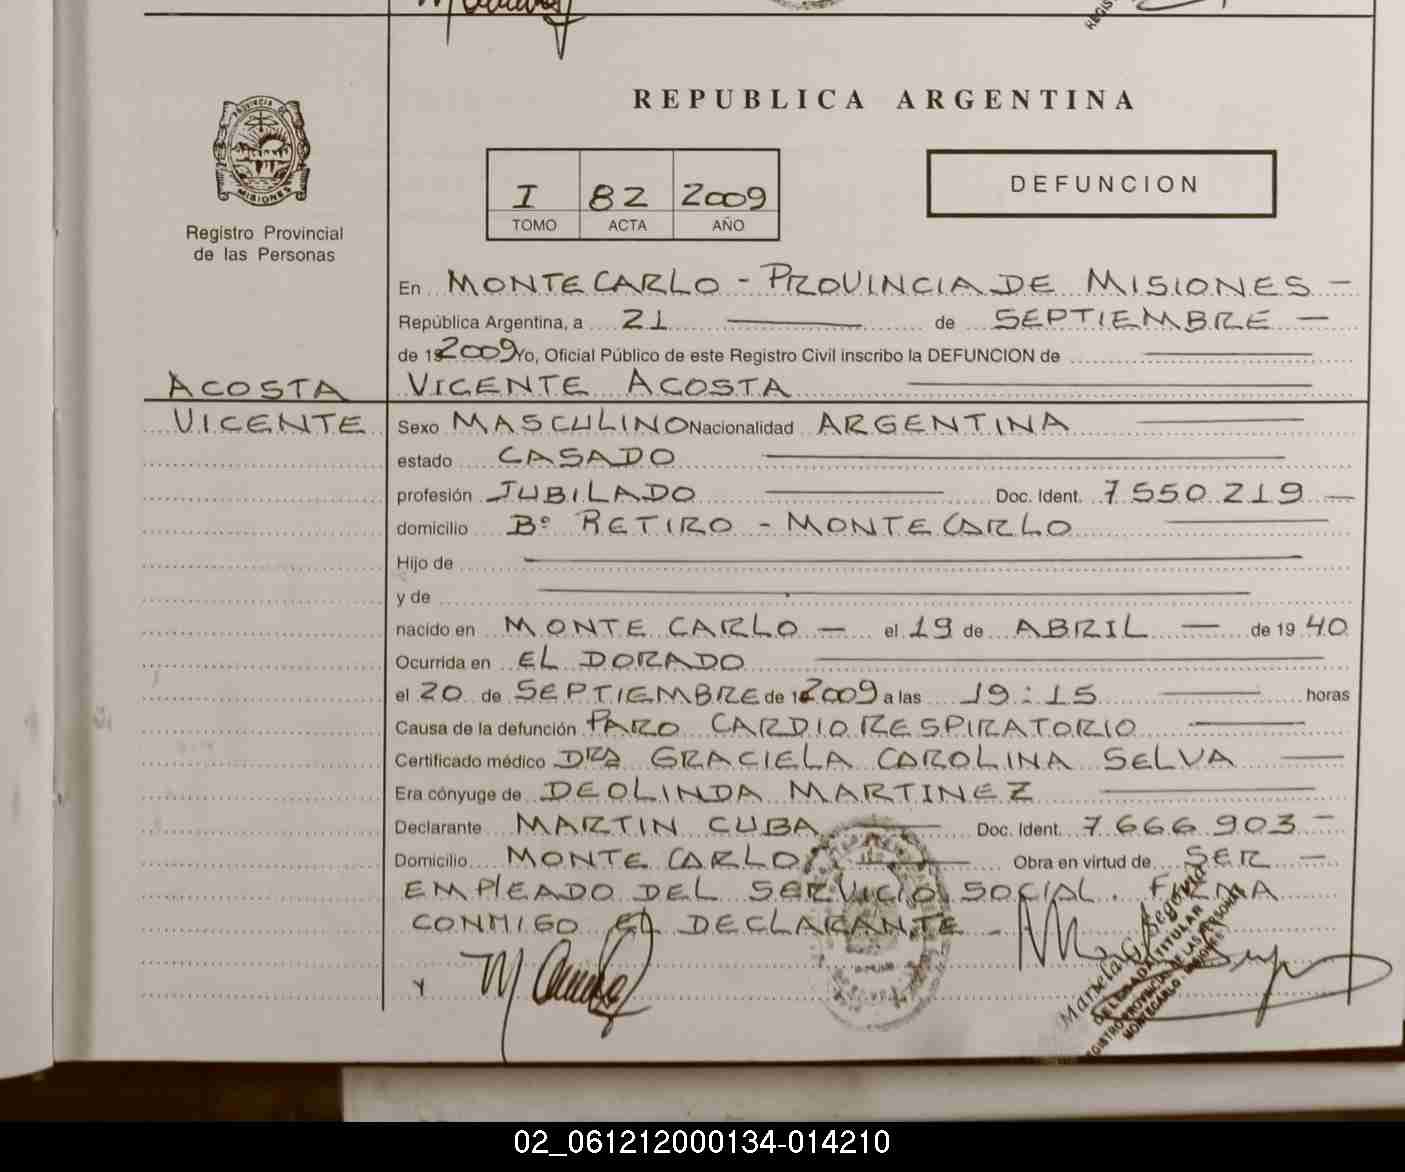 PROVINCIA DE
MISIONES
Registro Provincial
de las Personas
REPUBLICA ARGENTINA
I 82 2009
TOMO ACTA AÑO
DEFUNCION
En MONTECARLO - PROVINCIA DE MISIONES -
República Argentina, a 21 de SEPTIEMBRE -
de 2009 Yo, Oficial Público de este Registro Civil inscribo la DEFUNCION de
ACOSTA VICENTE ACOSTA
VICENTE Sexo MASCULINO Nacionalidad ARGENTINA
estado CASADO
profesión JUBILADO Doc. Ident. 7550.219 -
domicilio Bº RETIRO - MONTECARLO
Hijo de
y de
nacido en MONTE CARLO - el 19 de ABRIL - de 19 40
Ocurrida en ELDORADO
el 20 de SEPTIEMBRE de 2009 a las 19:15 horas
Causa de la defunción PARO CARDIORESPIRATORIO
Certificado médico DRA GRACIELA CAROLINA SELVA
Era cónyuge de DEOLINDA MARTINEZ
Declarante MARTIN CUBA Doc. Ident. 7.666.903 -
Domicilio MONTECARLO Obra en virtud de SER -
EMPLEADO DEL SERVICIO SOCIAL. FIRMA
CONMIGO EL DECLARANTE -
DELEGADA TITULAR
REGISTRO PROVINCIAL DE LAS PERSONAS
MONTECARLO MISIONES
02_061212000134-014210